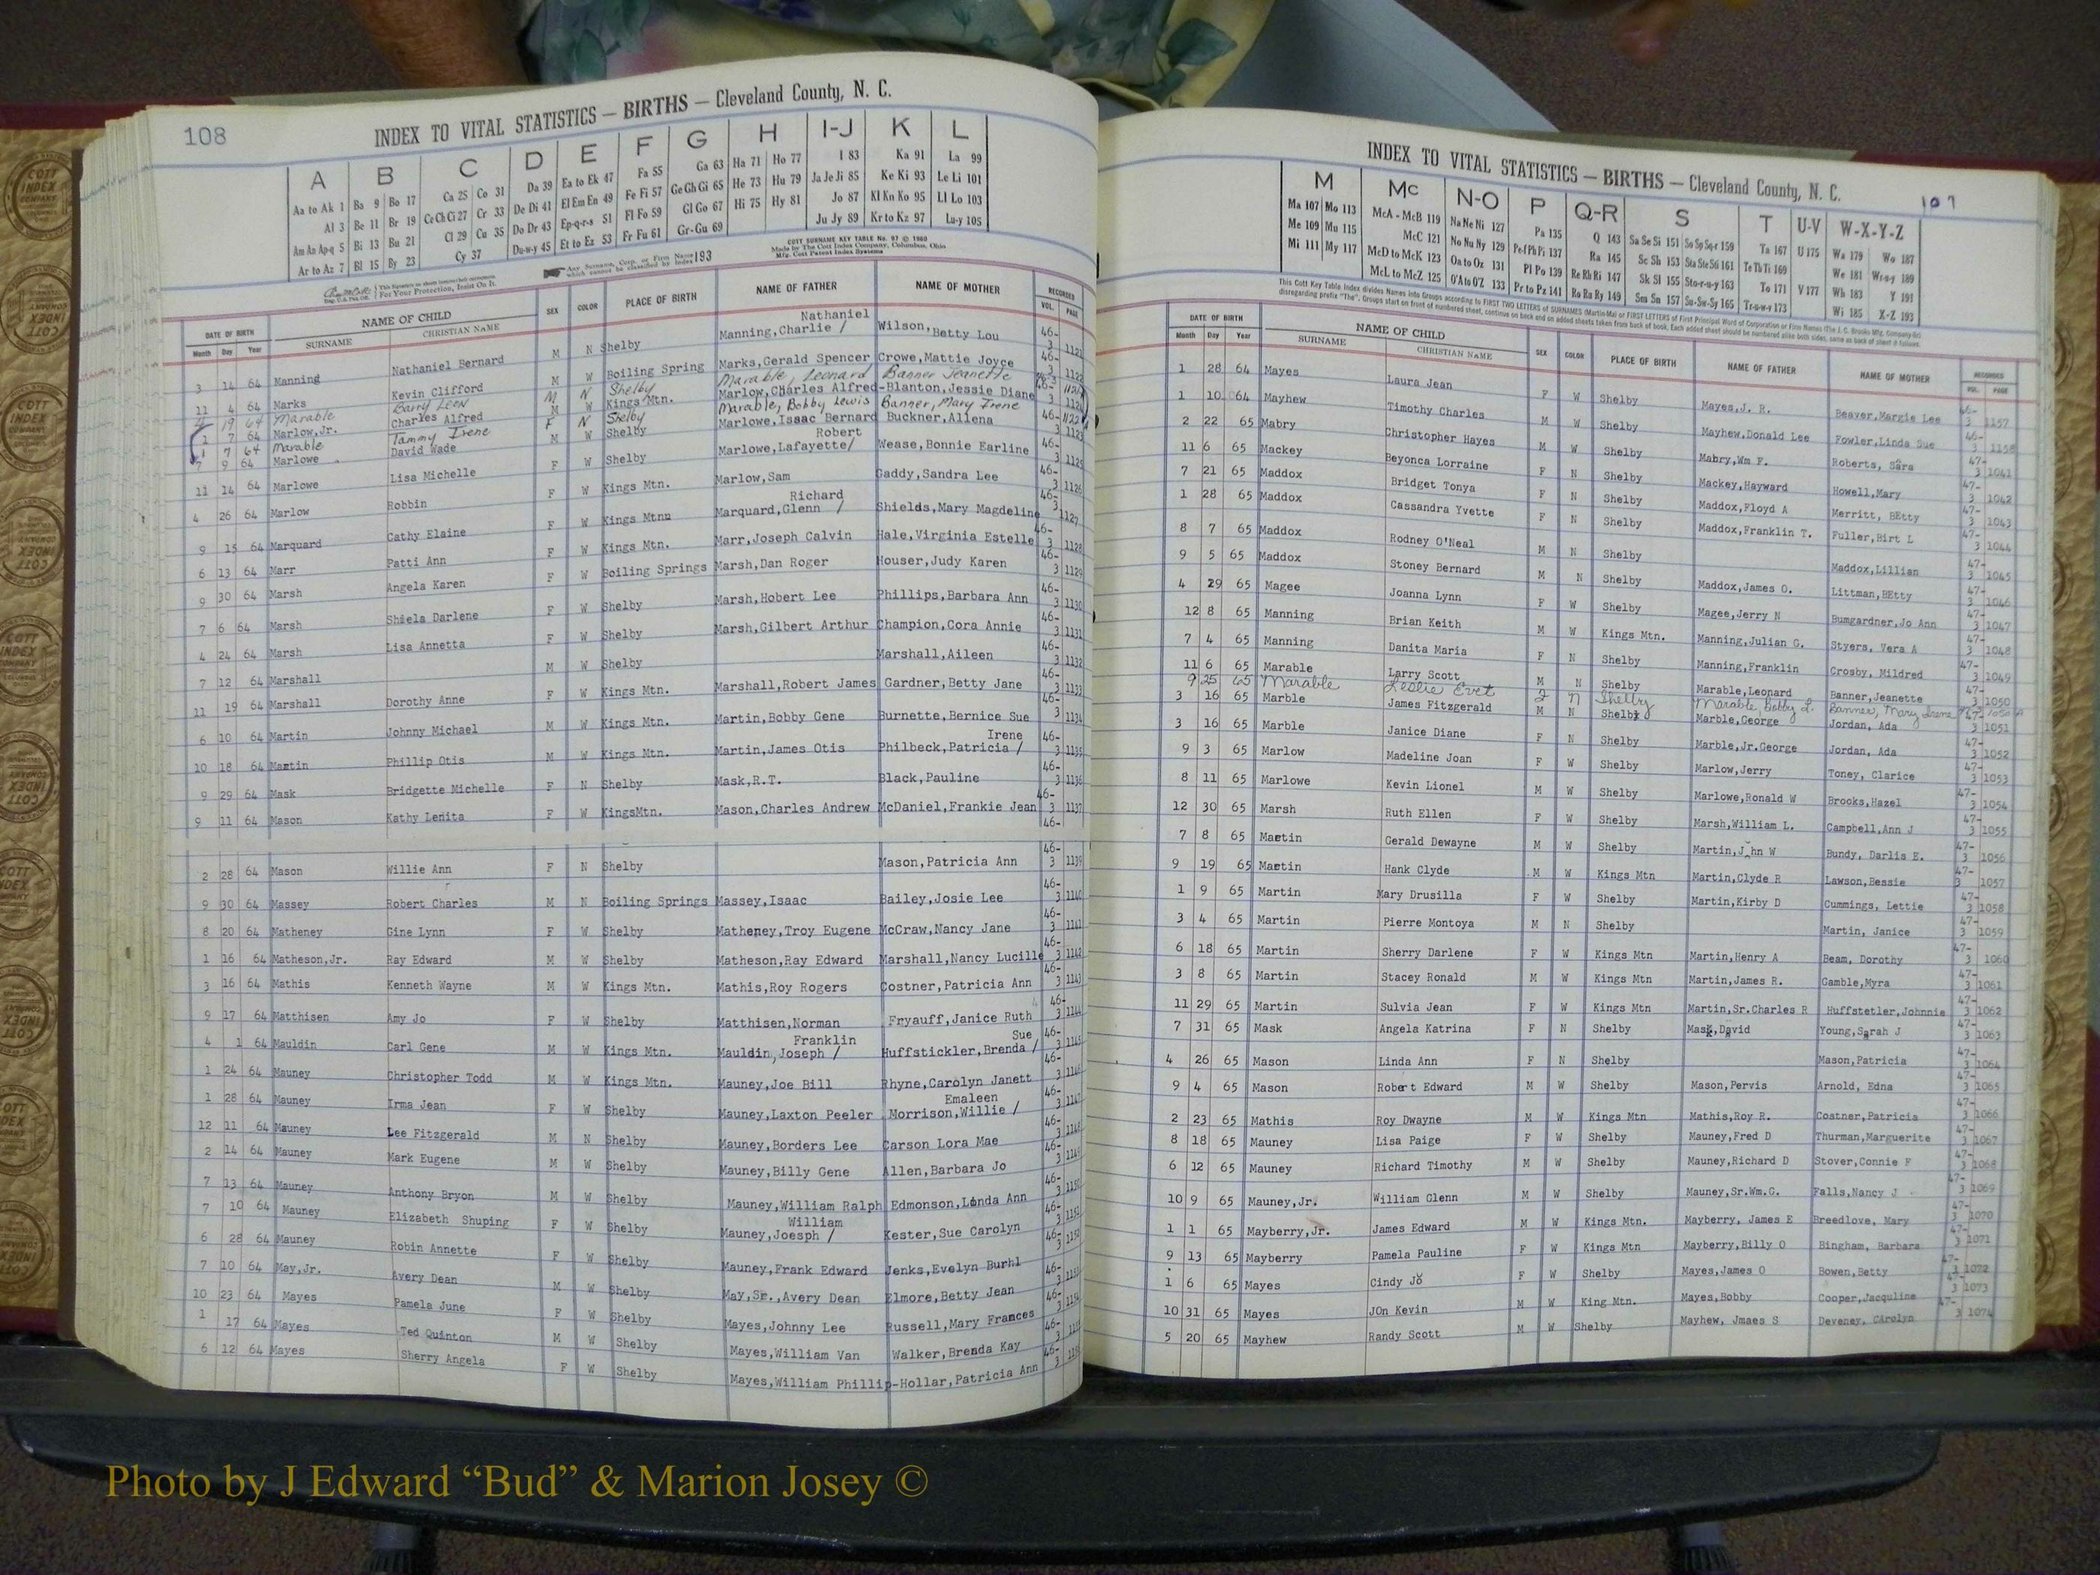 108
INDEX TO VITAL STATISTICS — BIRTHS — Cleveland County, N. C.
A B C D E F G H I-J K L
Aa to Ak 1 Ba 9 Bo 17 Ca 25 Co 31 Da 39 Ea to Ek 47 Fa 55 Ga 63 Ha 71 Ho 77 I 83 Ka 91 La 99
Al 3 Be 11 Br 19 Ce Ch Ci 27 Cr 33 De Di 41 El Em En 49 Fe Fi 57 Ge Gh Gi 65 He 73 Hu 79 Ja Je Ji 85 Ke Ki 93 Le Li 101
Am An Ap-q 5 Bi 13 Bu 21 Cl 29 Cu 35 Do Dr 43 Ep-q-r-s 51 Fl Fo 59 Gl Go 67 Hi 75 Hy 81 Jo 87 Kl Kn Ko 95 Ll Lo 103
Ar to Az 7 Bl 15 By 23 Cy 37 Du-w-y 45 Et to Ez 53 Fr Fu 61 Gr-Gu 69 Ju Jy 89 Kr to Kz 97 Lu-y 105
COTT SURNAME KEY TABLE No. 97 © 1960
Made by The Cott Index Company, Columbus, Ohio
Mfg. Cott Patent Index Systems
For Your Protection, Insist On It.
Any Surname, Corp. or Firm Name which cannot be classified by Index 193
DATE OF BIRTH NAME OF CHILD SEX COLOR PLACE OF BIRTH NAME OF FATHER NAME OF MOTHER RECORDED
Month Day Year SURNAME CHRISTIAN NAME VOL. PAGE
3 14 64 Manning Nathaniel Bernard M N Shelby Manning,Charlie / Nathaniel Wilson,Betty Lou 46-3 1121
11 4 64 Marks Kevin Clifford M W Boiling Spring Marks,Gerald Spencer Crowe,Mattie Joyce 46-3 1122
19 64 Marable Barry Leon M N Shelby Marable, Leonard Banner Jeanette
1 7 64 Marlow,Jr. Charles Alfred M W Kings Mtn. Marlow,Charles Alfred-Blanton,Jessie Diane 46-3
1 7 64 Marable Tammy Irene F N Shelby Marable, Bobby Lewis Banner, Mary Irene
7 9 64 Marlowe David Wade M W Shelby Marlowe,Isaac Bernard Buckner,Allena 46-3
11 14 64 Marlowe Lisa Michelle F W Shelby Marlowe,Lafayette/ Robert Wease,Bonnie Earline 46-3 1125
4 26 64 Marlow Robbin F W Kings Mtn. Marlow,Sam Gaddy,Sandra Lee 46-3 1126
9 15 64 Marquard Cathy Elaine F W Kings Mtnn Marquard,Glenn / Richard Shields,Mary Magdeline 46-3 1127
6 13 64 Marr Patti Ann F W Kings Mtn. Marr,Joseph Calvin Hale,Virginia Estelle 46-3 1128
9 30 64 Marsh Angela Karen F W Boiling Springs Marsh,Dan Roger Houser,Judy Karen 46-3 1129
7 6 64 Marsh Shiela Darlene F W Shelby Marsh,Hobert Lee Phillips,Barbara Ann 46-3 1130
4 24 64 Marsh Lisa Annetta F W Shelby Marsh,Gilbert Arthur Champion,Cora Annie 46-3 1131
7 12 64 Marshall M W Shelby Marshall,Aileen 46-3 1132
11 19 64 Marshall Dorothy Anne F W Kings Mtn. Marshall,Robert James Gardner,Betty Jane 46-3 1133
6 10 64 Martin Johnny Michael M W Kings Mtn. Martin,Bobby Gene Burnette,Bernice Sue 46-3 1134
10 18 64 Martin Phillip Otis M W Kings Mtn. Martin,James Otis Philbeck,Patricia / Irene 46-3 1135
9 29 64 Mask Bridgette Michelle F N Shelby Mask,R.T. Black,Pauline 46-3 1136
9 11 64 Mason Kathy Lenita F W KingsMtn. Mason,Charles Andrew McDaniel,Frankie Jean 46-3 1137
46-
2 28 64 Mason Willie Ann F N Shelby Mason,Patricia Ann 46-3 1139
9 30 64 Massey Robert Charles M N Boiling Springs Massey,Isaac Bailey,Josie Lee 46-3 1140
8 20 64 Matheney Gine Lynn F W Shelby Matheney,Troy Eugene McCraw,Nancy Jane 46-3 1141
1 16 64 Matheson,Jr. Ray Edward M W Shelby Matheson,Ray Edward Marshall,Nancy Lucille 46-3 1142
3 16 64 Mathis Kenneth Wayne M W Kings Mtn. Mathis,Roy Rogers Costner,Patricia Ann 46-3 1143
9 17 64 Matthisen Amy Jo F W Shelby Matthisen,Norman Fryauff,Janice Ruth 46-3 1144
4 1 64 Mauldin Carl Gene M W Kings Mtn. Mauldin,Joseph / Franklin Huffstickler,Brenda / Sue 46-3 1145
1 24 64 Mauney Christopher Todd M W Kings Mtn. Mauney,Joe Bill Rhyne,Carolyn Janett 46-3 1146
1 28 64 Mauney Irma Jean F W Shelby Mauney,Laxton Peeler Morrison,Willie / Emaleen 46-3 1147
12 11 64 Mauney Lee Fitzgerald M N Shelby Mauney,Borders Lee Carson Lora Mae 46-3 1148
2 14 64 Mauney Mark Eugene M W Shelby Mauney,Billy Gene Allen,Barbara Jo 46-3 1149
7 13 64 Mauney Anthony Bryon M W Shelby Mauney,William Ralph Edmonson,Linda Ann 46-3 1150
7 10 64 Mauney Elizabeth Shuping F W Shelby Mauney,Joesph / William Kester,Sue Carolyn 46-3 1151
6 28 64 Mauney Robin Annette F W Shelby Mauney,Frank Edward Jenks,Evelyn Burhl 46-3 1152
7 10 64 May,Jr. Avery Dean M W Shelby May,Sr.,Avery Dean Elmore,Betty Jean 46-3
10 23 64 Mayes Pamela June F W Shelby Mayes,Johnny Lee Russell,Mary Frances 46-3
1 17 64 Mayes Ted Quinton M W Shelby Mayes,William Van Walker,Brenda Kay 46-3
6 12 64 Mayes Sherry Angela F W Shelby Mayes,William Phillip-Hollar,Patricia Ann 46-3
INDEX TO VITAL STATISTICS — BIRTHS — Cleveland County, N. C.
107
M Mc N-O P Q-R S T U-V W-X-Y-Z
Ma 107 Mo 113 McA - McB 119 Na Ne Ni 127 Pa 135 Q 143 Sa Se Si 151 So Sp Sq-r 159 Ta 167 U 175 Wa 179 Wo 187
Me 109 Mu 115 McC 121 No Nu Ny 129 Pe Pf Ph Pi 137 Ra 145 Sc Sh 153 Sta Ste Sti 161 Te Th Ti 169 We 181 Wr-u-y 189
Mi 111 My 117 McD to McK 123 Oa to Oz 131 Pl Po 139 Re Rh Ri 147 Sk Sl 155 Sto-r-u-y 163 To 171 V 177 Wh 183 Y 191
McL to McZ 125 O'A to O'Z 133 Pr to Pz 141 Ro Ru Ry 149 Sm Sn 157 Su-Sw-Sy 165 Tr-u-w-y 173 Wi 185 X-Z 193
DATE OF BIRTH NAME OF CHILD SEX COLOR PLACE OF BIRTH NAME OF FATHER NAME OF MOTHER RECORDED
Month Day Year SURNAME CHRISTIAN NAME VOL. PAGE
1 28 64 Mayes Laura Jean F W Shelby Mayes,J. R. Beaver,Margie Lee 46-3 1157
1 10 64 Mayhew Timothy Charles M W Shelby Mayhew,Donald Lee Fowler,Linda Sue 46-3 1158
2 22 65 Mabry Christopher Hayes M W Shelby Mabry,Wm F. Roberts, Sara 47-3 1041
11 6 65 Mackey Beyonca Lorraine F N Shelby Mackey,Hayward Howell,Mary 47-3 1042
7 21 65 Maddox Bridget Tonya F N Shelby Maddox,Floyd A Merritt, BEtty 47-3 1043
1 28 65 Maddox Cassandra Yvette F N Shelby Maddox,Franklin T. Fuller,Birt L 47-3 1044
8 7 65 Maddox Rodney O'Neal M N Shelby Maddox,Lillian 47-3 1045
9 5 65 Maddox Stoney Bernard M N Shelby Maddox,James O. Littman,BEtty 47-3 1046
4 29 65 Magee Joanna Lynn F W Shelby Magee,Jerry N Bumgardner,Jo Ann 47-3 1047
12 8 65 Manning Brian Keith M W Kings Mtn. Manning,Julian G. Styers, Vera A 47-3 1048
7 4 65 Manning Danita Maria F N Shelby Manning,Franklin Crosby, Mildred 47-3 1049
11 6 65 Marable Larry Scott M N Shelby Marable,Leonard Banner,Jeanette 47-3 1050
9 25 65 Marable Leslie Evet F N Shelby Marable, Bobby L. Banner, Mary Irene
3 16 65 Marble James Fitzgerald M N Shelby Marble,George Jordan, Ada 47-3 1051
3 16 65 Marble Janice Diane F N Shelby Marble,Jr.George Jordan, Ada 47-3 1052
9 3 65 Marlow Madeline Joan F W Shelby Marlow,Jerry Toney, Clarice 47-3 1053
8 11 65 Marlowe Kevin Lionel M W Shelby Marlowe,Ronald W Brooks,Hazel 47-3 1054
12 30 65 Marsh Ruth Ellen F W Shelby Marsh,William L. Campbell,Ann J 47-3 1055
7 8 65 Martin Gerald Dewayne M W Shelby Martin,John W Bundy, Darlis E. 47-3 1056
9 19 65 Martin Hank Clyde M W Kings Mtn Martin,Clyde R Lawson,Bessie 47-3 1057
1 9 65 Martin Mary Drusilla F W Shelby Martin,Kirby D Cummings, Lettie 47-3 1058
3 4 65 Martin Pierre Montoya M N Shelby Martin, Janice 47-3 1059
6 18 65 Martin Sherry Darlene F W Kings Mtn Martin,Henry A Beam, Dorothy 47-3 1060
3 8 65 Martin Stacey Ronald M W Kings Mtn Martin,James R. Gamble,Myra 47-3 1061
11 29 65 Martin Sulvia Jean F W Kings Mtn Martin,Sr.Charles R Huffstetler,Johnnie 47-3 1062
7 31 65 Mask Angela Katrina F N Shelby Mask,David Young,Sarah J 47-3 1063
4 26 65 Mason Linda Ann F N Shelby Mason,Patricia 47-3 1064
9 4 65 Mason Robert Edward M W Shelby Mason,Pervis Arnold, Edna 47-3 1065
2 23 65 Mathis Roy Dwayne M W Kings Mtn Mathis,Roy R. Costner,Patricia 47-3 1066
8 18 65 Mauney Lisa Paige F W Shelby Mauney,Fred D Thurman,Marguerite 47-3 1067
6 12 65 Mauney Richard Timothy M W Shelby Mauney,Richard D Stover,Connie F 47-3 1068
10 9 65 Mauney,Jr. William Glenn M W Shelby Mauney,Sr.Wm.G. Falls,Nancy J 47-3 1069
1 1 65 Mayberry,Jr. James Edward M W Kings Mtn. Mayberry, James E Breedlove, Mary 47-3 1070
9 13 65 Mayberry Pamela Pauline F W Kings Mtn Mayberry,Billy O Bingham, Barbara 47-3 1071
1 6 65 Mayes Cindy Jo F W Shelby Mayes,James O Bowen,Betty 47-3 1072
10 31 65 Mayes JOn Kevin M W King Mtn. Mayes,Bobby Cooper,Jacquline 47-3 1073
5 20 65 Mayhew Randy Scott M W Shelby Mayhew, Jmaes S Deveney, CArolyn 47-3 1074
Photo by J Edward “Bud” & Marion Josey ©